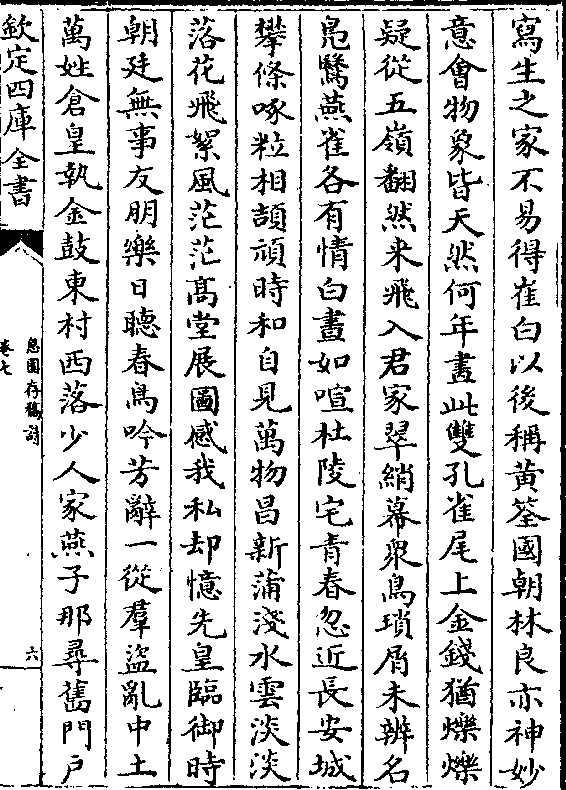 寫生之家不易得崔白以後稱黄筌國朝林良亦神妙
意會物象皆天然何年畫此雙孔雀尾上金錢猶爍爍
疑從五嶺翻然来飛入君家翠綃幕衆鳥瑣屑未辨名
鳬鷖燕雀各有情白晝如喧杜陵宅青春忽近長安城
攀條啄粒相頡頏時和自見萬物昌新蒲淺水雲淡淡
落花飛絮風茫茫髙堂展圖感我私却憶先皇臨御時
朝廷無事友朋樂日聽春鳥吟芳辭一從羣盜亂中土
萬姓倉皇執金鼓東村西落少人家燕子那尋舊門戶
欽定四庫全書
息園存稿詩
卷七
六